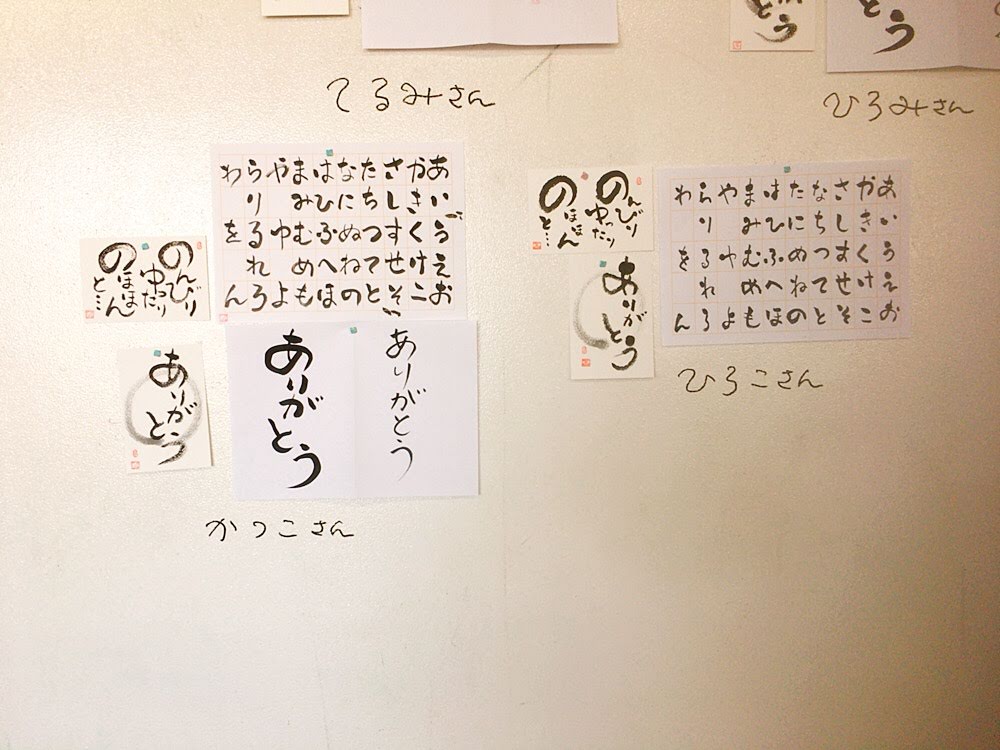 とう
とう
てるみさん
ひろみさん
あいうえお
かきくけこ
さしすせそ
たちつてと
なにぬねの
はひふへほ
まみむめも
やゆよ
らりるれろ
わをん
のんびり
ゆったり
のほほん
と…
ありがとう
ありがとう
ありがとう
かつこさん
あいうえお
かきくけこ
さしすせそ
なちつてと
たにぬねの
はひふへほ
まみむめも
やゆよ
らりるれろ
わをん
のんびり
ゆったり
のほほん
と…
ありがとう
ひろこさん